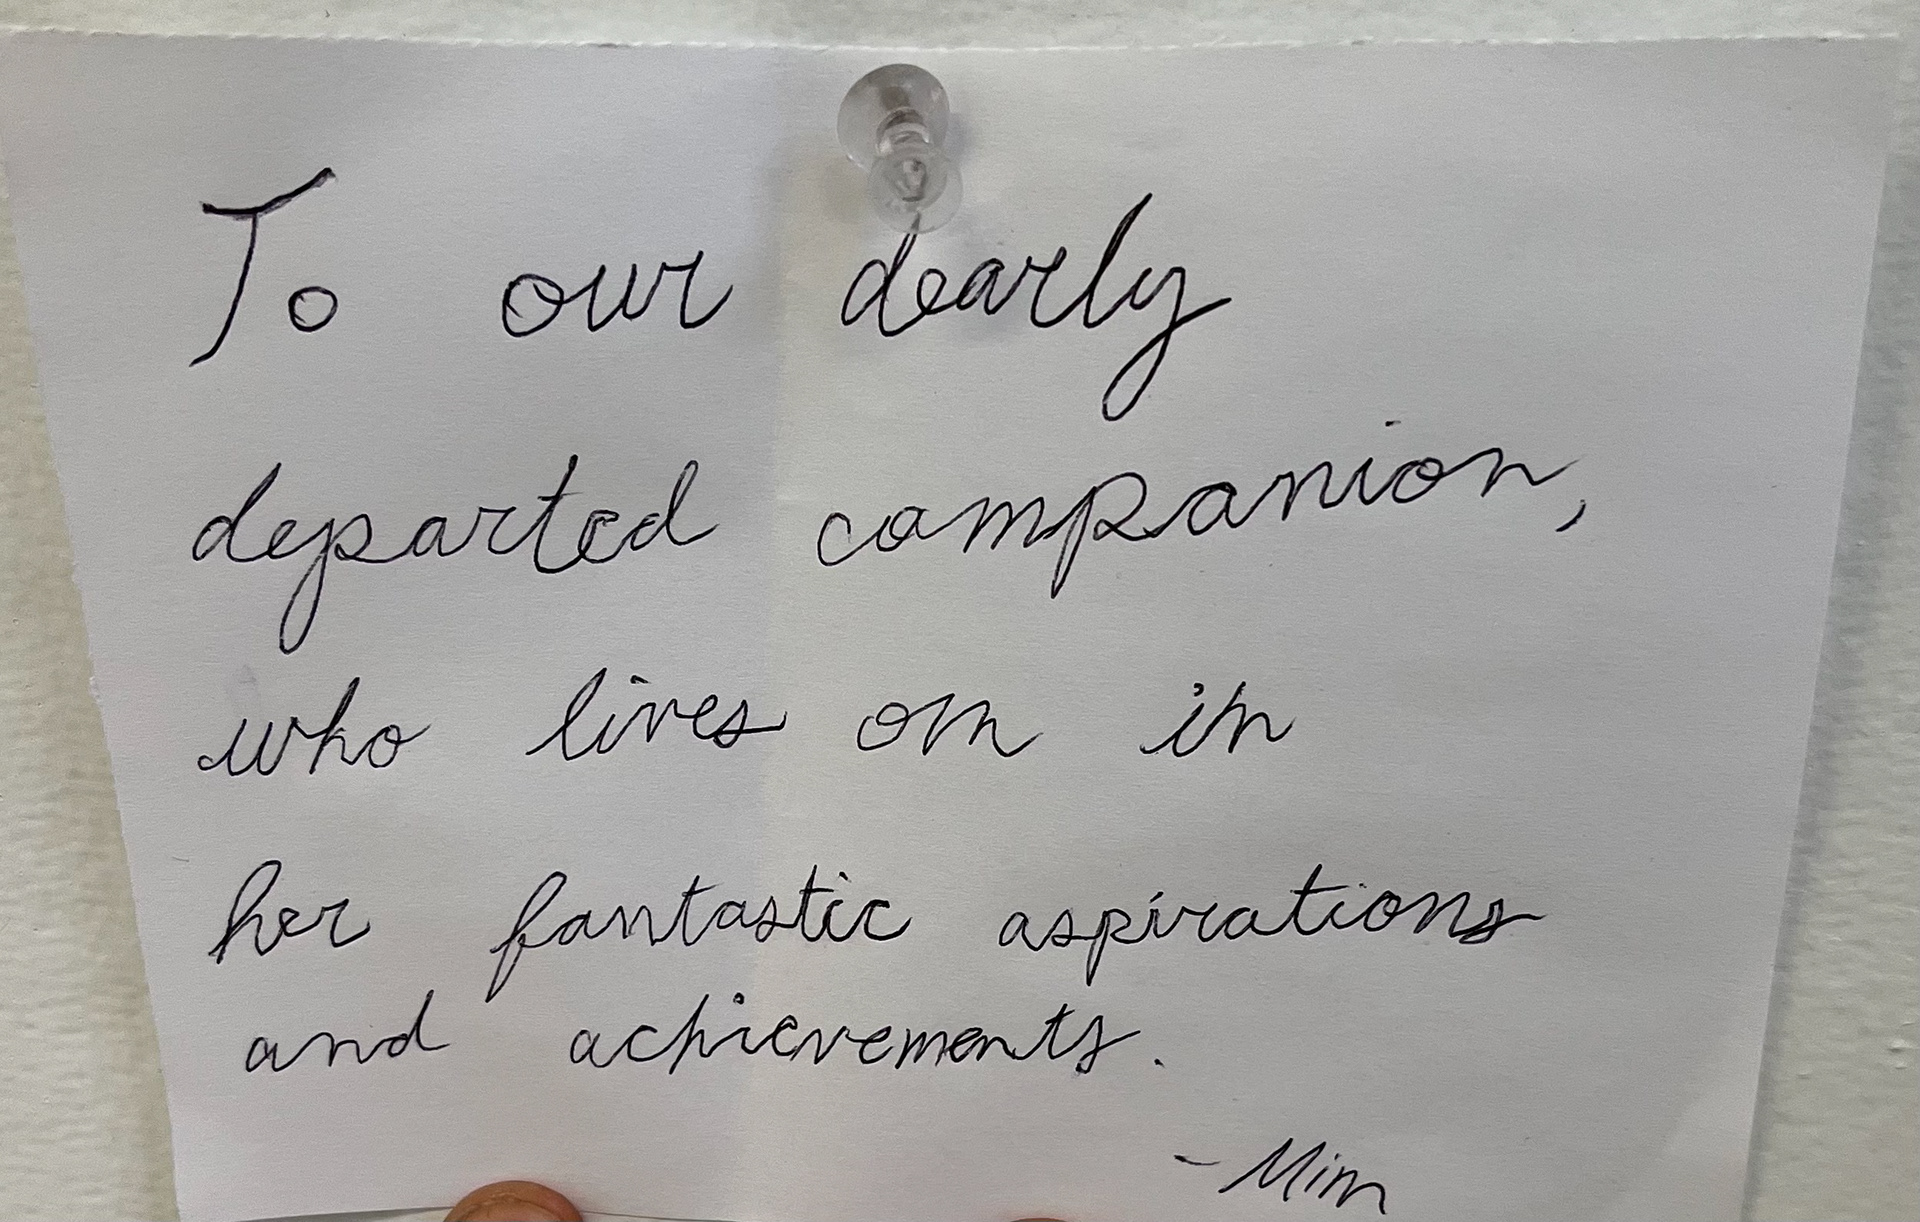 To our dearly
departed companion,
who lives on in
her fantastic aspirations
and achievements.
- Mim